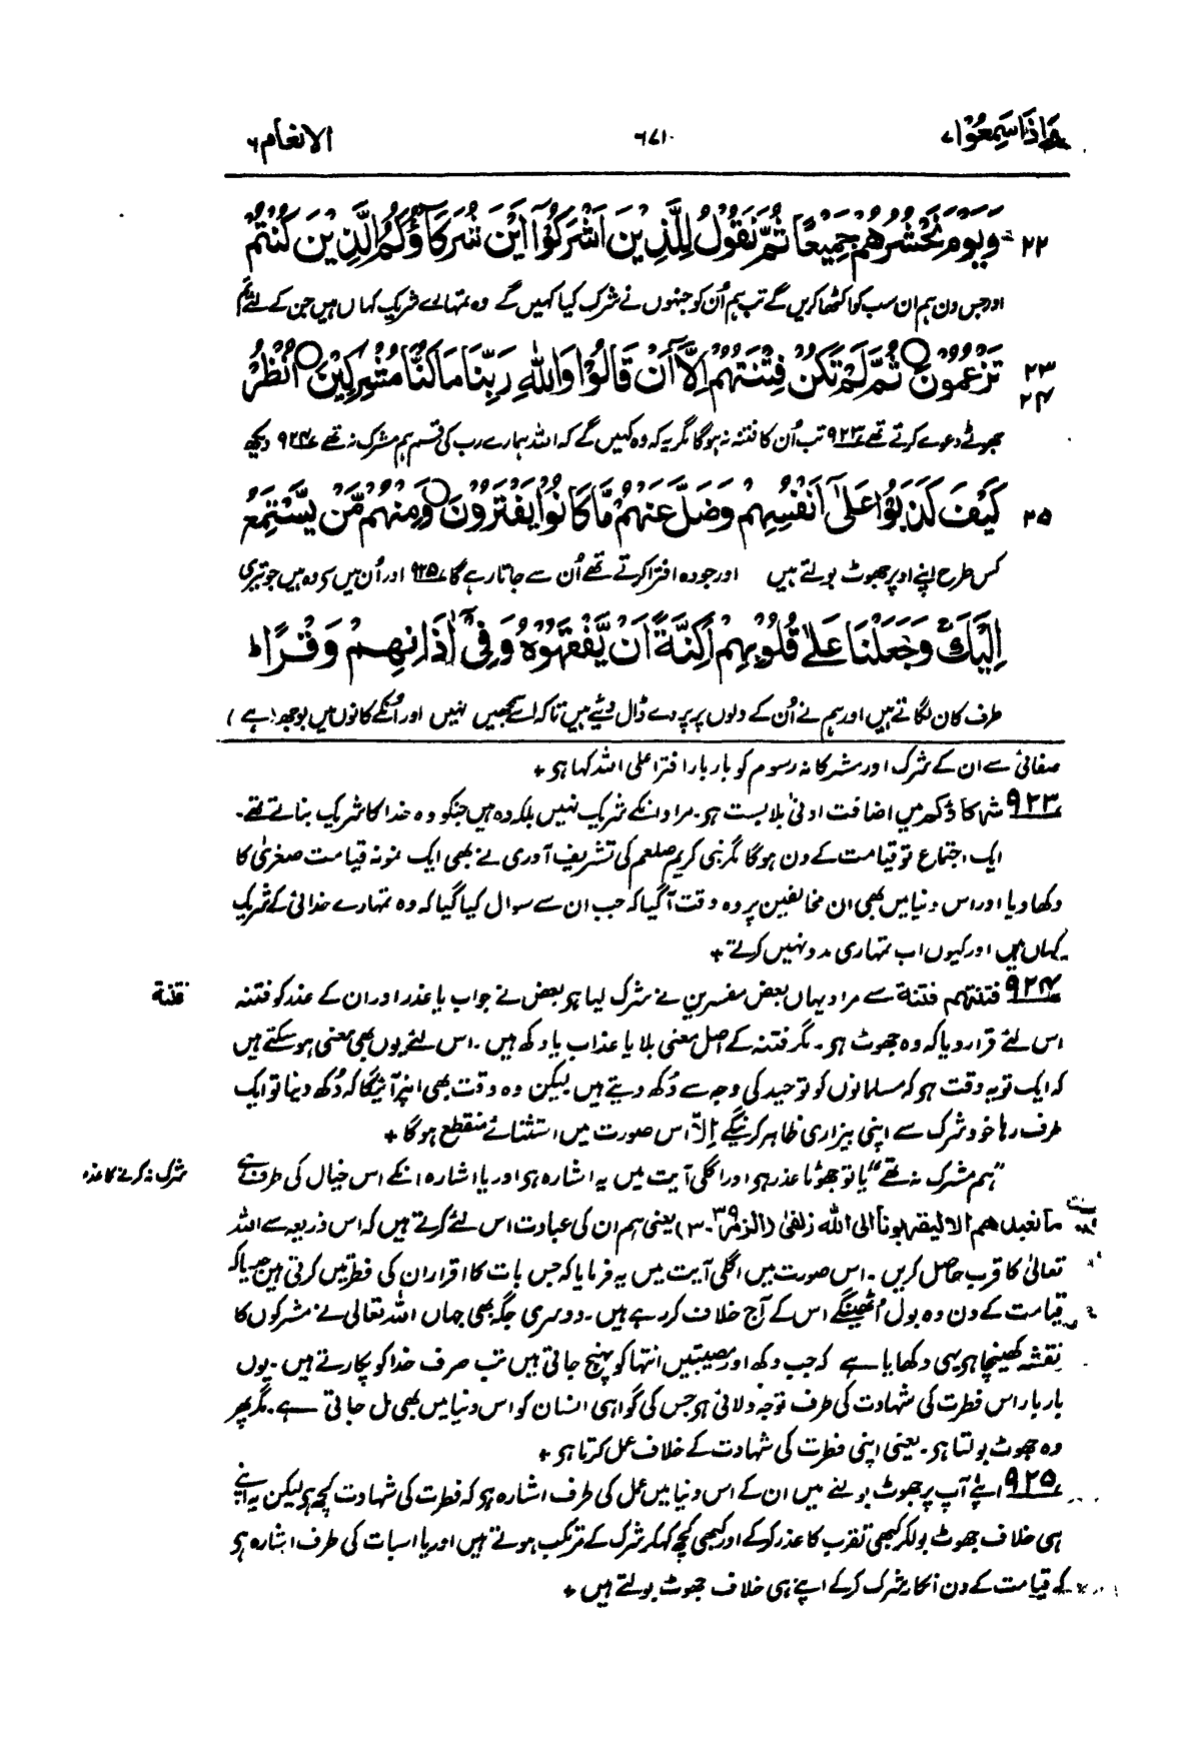 واذا سمعوا ۷ ۶۷۱ الانعام ۶
۲۲ وَيَوْمَ نَحْشُرُهُمْ جَمِيعًا ثُمَّ نَقُوْلُ لِلَّذِيْنَ اَشْرَكُوْٓا اَيْنَ شُرَكَآؤُكُمُ الَّذِيْنَ كُنْتُمْ
اور جس دن ہم ان سب کو اکٹھا کریں گے تب ہم اُن کو جنہوں نے شرک کیا کہیں گے وہ تمہارے شریک کہاں ہیں جن کے لئے تم
۲۳ ۲۴ تَزْعُمُوْنَ ۝ ثُمَّ لَمْ تَكُنْ فِتْنَتُهُمْ اِلَّآ اَنْ قَالُوْا وَاللّٰهِ رَبِّنَا مَا كُنَّا مُشْرِكِيْنَ ۝ اُنْظُرْ
جھوٹے دعوے کرتے تھے ۹۲۳ تب اُن کا فتنہ نہ ہوگا مگر یہ کہ وہ کہیں گے کہ اللہ ہمارے رب کی قسم ہم مشرک نہ تھے ۹۲۴ دیکھ
۲۵ كَيْفَ كَذَبُوْا عَلٰٓى اَنْفُسِهِمْ وَضَلَّ عَنْهُمْ مَّا كَانُوْا يَفْتَرُوْنَ ۝ وَمِنْهُمْ مَّنْ يَّسْتَمِعُ
کس طرح اپنے اوپر جھوٹ بولتے ہیں اور جو وہ افترا کرتے تھے اُن سے جاتا رہے گا ۹۲۵ اور اُن میں سے وہ ہیں جو تیری
اِلَيْكَ وَجَعَلْنَا عَلٰى قُلُوْبِهِمْ اَكِنَّةً اَنْ يَّفْقَهُوْهُ وَفِيْٓ اٰذَانِهِمْ وَقْرًا ط
طرف کان لگاتے ہیں اور ہم نے اُن کے دلوں پر پردے ڈال دیئے ہیں تاکہ اسے سمجھیں نہیں اور اُنکے کانوں میں بوجھ (ہے)
صفائی سے ان کے شرک اور مشرکانہ رسوم کو بار بار افترا علی اللہ کہا ہو +
۹۲۳ شرکاؤکم میں اضافت ادنیٰ ملابست ہو۔ مراد انکے شریک نہیں بلکہ وہ ہیں جنکو وہ خدا کا شریک بناتے تھے۔
ایک اجتماع تو قیامت کے دن ہوگا مگر نبی کریم صلعم کی تشریف آوری نے بھی ایک نمونہ قیامت صغریٰ کا
دکھا دیا اور اس دنیا میں بھی ان مخالفین پر وہ وقت آگیا کہ جب ان سے سوال کیا گیا کہ وہ تمہارے خدائی کے شریک
کہاں ہیں اور کیوں اب تمہاری مدد نہیں کرتے +
۹۲۴ فتنتھم فتنۃ سے مراد یہاں بعض مفسرین نے شرک لیا ہو بعض نے جواب یا عذر اور ان کے عذر کو فتنہ
فتنة
اس لئے قرار دیا کہ وہ جھوٹ ہو۔ مگر فتنہ کے اصل معنی بلا یا عذاب یا دکھ ہیں۔ اس لئے یوں بھی معنی ہو سکتے ہیں
کہ ایک تو یہ وقت ہو کہ مسلمانوں کو توحید کی وجہ سے دُکھ دیتے ہیں لیکن وہ وقت بھی انپر آئیگا کہ دُکھ دینا تو ایک
طرف رہا خود شرک سے اپنی بیزاری ظاہر کرینگے اِلّا اس صورت میں استثنائے منقطع ہوگا +
"ہم مشرک نہ تھے" یا تو جھوٹا عذر ہو اور اگلی آیت میں یہ اشارہ ہو اور یا اشارہ انکے اس خیال کی طرف ہے
شرک نہ کرنے کا عذر
ما نعبدھم الا لیقربونا الی اللہ زلفیٰ (الزمر ۳۹۔۳) یعنی ہم ان کی عبادت اس لئے کرتے ہیں کہ اس ذریعہ سے اللہ
تعالیٰ کا قرب حاصل کریں۔ اس صورت میں اگلی آیت میں یہ فرمایا کہ جس بات کا اقرار ان کی فطرتیں کرتی ہیں جیسا کہ
قیامت کے دن وہ بول اُٹھینگے اس کے آج خلاف کر رہے ہیں۔ دوسری جگہ بھی جہاں اللہ تعالی نے مشرکوں کا
نقشہ کھینچا ہو یہی دکھایا ہے کہ جب دکھ اور مصیبتیں انتہا کو پہنچ جاتی ہیں تب صرف خدا کو پکارتے ہیں۔ یوں
بار بار اس فطرت کی شہادت کی طرف توجہ دلائی ہو جس کی گواہی انسان کو اس دنیا میں بھی مل جاتی ہے۔ مگر پھر
وہ جھوٹ بولتا ہو۔ یعنی اپنی فطرت کی شہادت کے خلاف عمل کرتا ہو +
۹۲۵ اپنے آپ پر جھوٹ بولنے میں ان کے اس دنیا میں عمل کی طرف اشارہ ہو کہ فطرت کی شہادت کچھ ہو لیکن یہ اپنے
ہی خلاف جھوٹ بولکر کبھی تقرب کا عذر کرکے اور کبھی کچھ کہکر شرک کے مرتکب ہوتے ہیں اور یا اس بات کی طرف اشارہ ہو
کہ قیامت کے دن انکار شرک کرکے اپنے ہی خلاف جھوٹ بولتے ہیں +